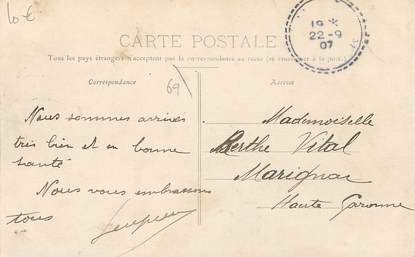 10€
19 *
22-9
07
CARTE POSTALE
Tous les pays étrangers n'acceptent pas la correspondance au recto (se renseigner à la poste).
Correspondance
Adresse
69
Nous sommes arrivés
très bien et en bonne
santé
Nous vous embrassons
tous
Mademoiselle
Berthe Vital
Marignac
Haute Garonne